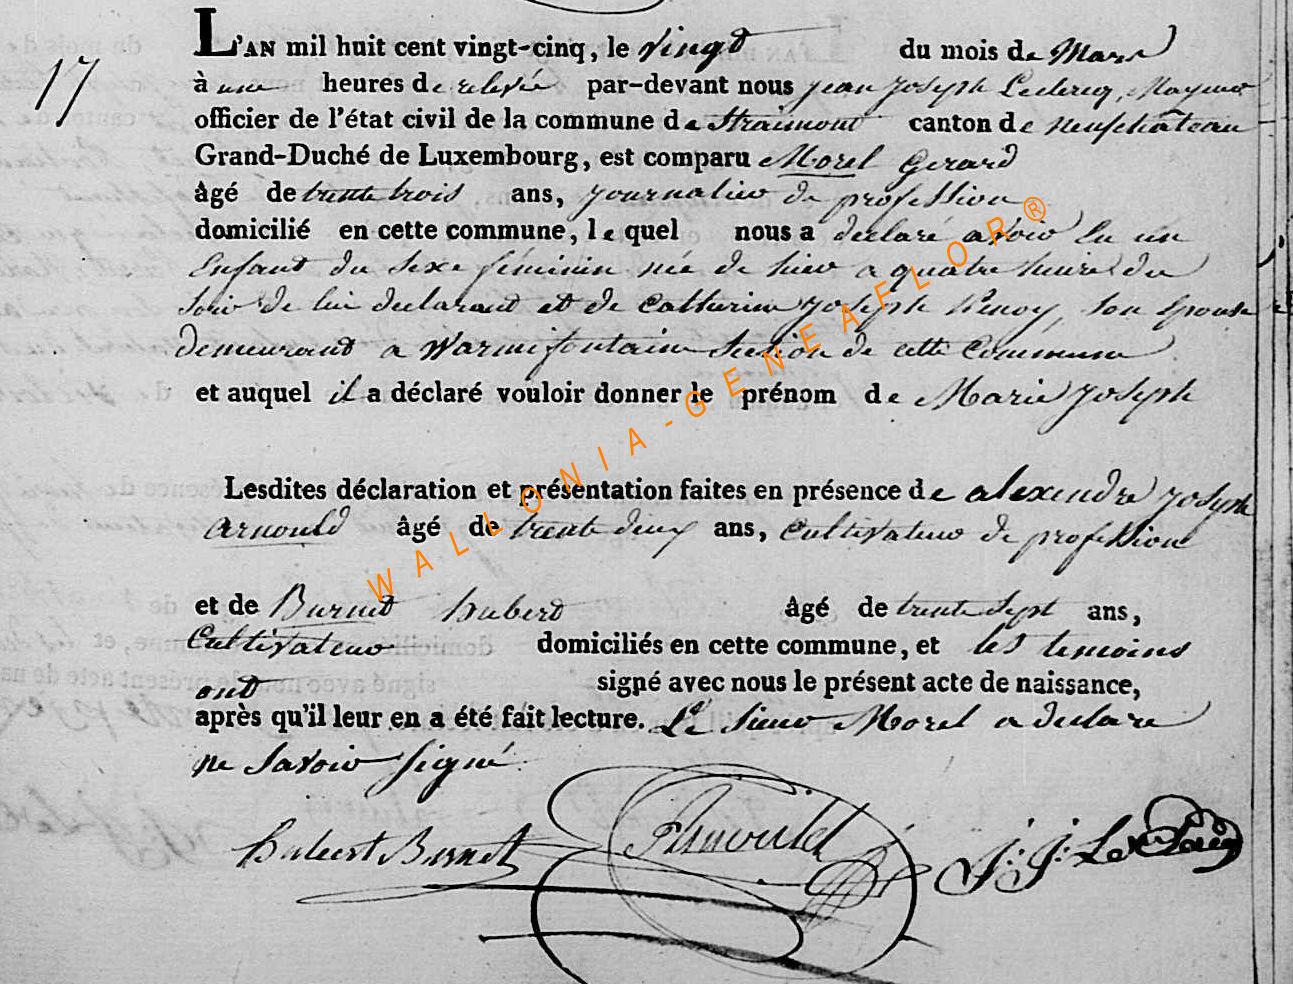 17
L'AN mil huit cent vingt-cinq, le vingt du mois de Mars
à une heures de relevée par-devant nous jean joseph Leclercq, Mayeur
officier de l'état civil de la commune de Straimont canton de neufchâteau
Grand-Duché de Luxembourg, est comparu Morel Gerard
âgé de trente trois ans, journalier de profession
domicilié en cette commune, le quel nous a declaré avoir Eu un
Enfant du sexe féminin née de hier a quatre heures du
soir de lui declarant et de Catherine joseph son Epouse
demeurant a Warmifontaine Section de cette Commune
et auquel il a déclaré vouloir donner le prénom de Marie joseph
Lesdites déclaration et présentation faites en présence de alexendre joseph
arnould âgé de trente deux ans, Cultivateur de profession
et de Burnet hubert âgé de trente sept ans,
Cultivateur domiciliés en cette commune, et les temoins
ont signé avec nous le présent acte de naissance,
après qu'il leur en a été fait lecture. Le sieur Morel a declare
ne savoir signé.
hubert Burnet Arnould J: J: Leclercq
WALLONIA-GENEAFLOR®